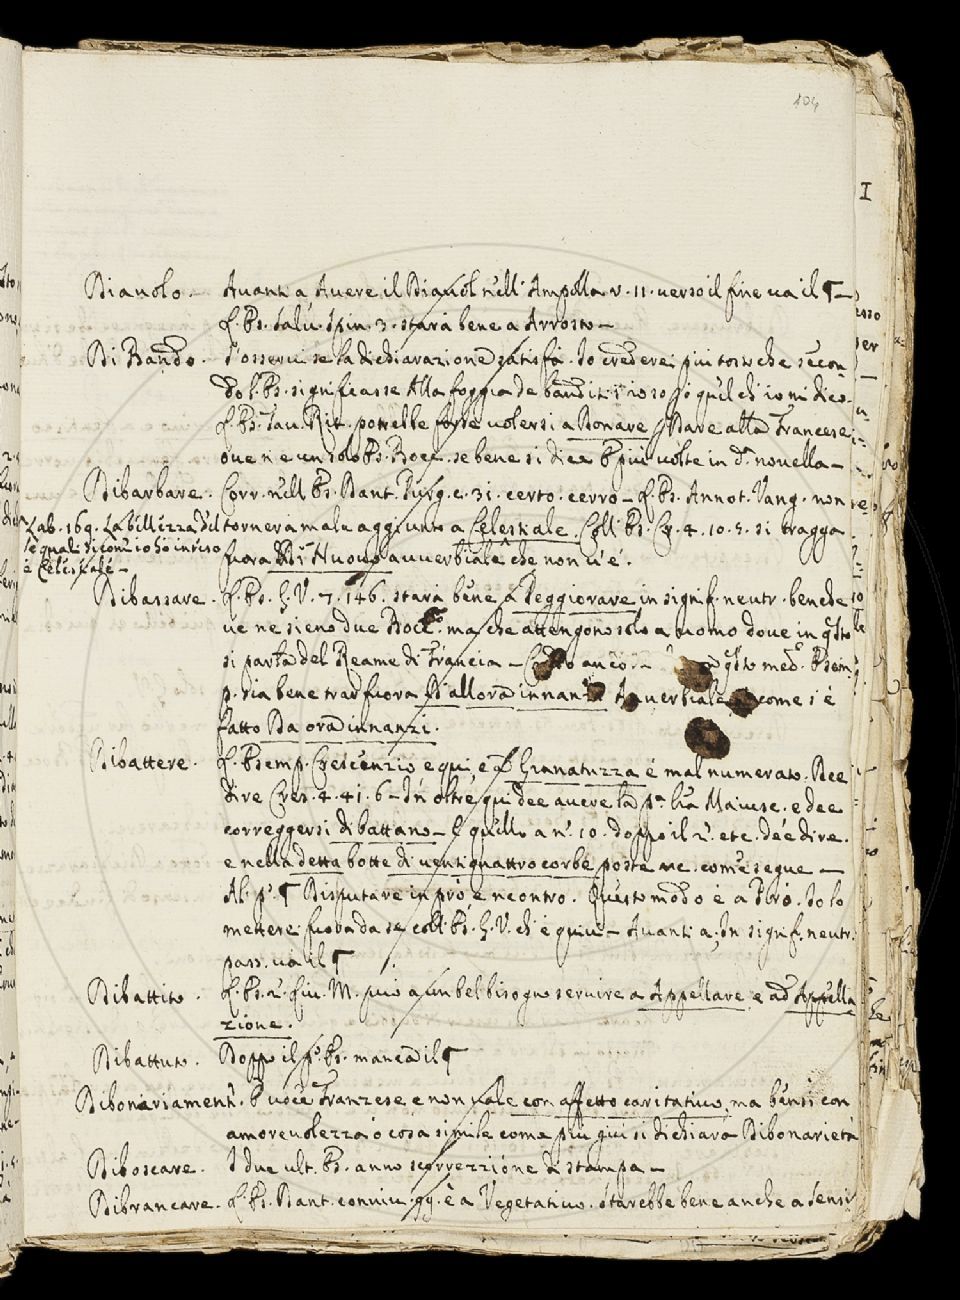 104
I
Diavolo — Avanti a Avere il Diavol nell' Ampolla v. 11. verso il fine va il ¶ —
L. Es. Salv. Spin. 3. starà bene a Arrosto —
Di Bando. S'osservi se la dichiarazione satisfà. Io crederei più tosto che secon-
do l'Es. significasse Alla foggia de banditi
L. Es. Tav. Rit. potrebbe forse volersi a Donare Dare alla Francese
ove n'è un solo Es. Bocc. se bene si dice più volte in d.ª novella —
Dibarbare. Corr. nell' Es. Dant. Purg. c. 31. certo. cerro — L. Es. Annot. Vang. non
Lab. 169. La bellezza del tornerà male aggiunto a Celestiale. Coll' Es. Cr. 4. 10. 5. si tragga
le quali dicon' io ho inteso
fuora Di Nuovo avverbiale che non v'è.
è Celestiale —
Dibassare. L. Es. G. V. 7. 146. starà bene a Peggiorare in signif. neutr. benche
ve ne sieno due Bocc. ma che attengono solo a uomo dove in qsto
si parla del Reame di Francia —
sia bene trar fuora D'allora innanzi Avverbiale come s'è
fatto Da ora innanzi.
Dibattere. L. Esemp. Crescenzio e qui, e a Granatuzza è mal numerato. Dee
dire Cres. 4. 41. 6 — In oltre qui dee avere la p.ª l.ra Maiusc. e dee
correggersi dibattano — E quello a n.º 10. doppo il 2. etc. dee dire.
e nella detta botte di ventiquattro corbe poste ne. come segue —
Al p.º ¶ Disputare in pro, e ncontro. Questo modo è a Pro. Io lo
metterei fuora da se coll' Es. G. V. ch'è quivi — Avanti a. In signif. neutr.
pass. va il ¶
Dibattito. L. Es. 2. Liv. M. può a un bel bisogno servire a Appellare e ad Appella
zione.
Dibattuto. Doppo il p.º Es. manca il ¶
Dibonariamente. È voce Franzese, e non vale con affetto caritativo, ma bensì con
amorevolezza o cosa simile come più qui si dichiara Dibonarietà
Diboscare. I due ult. Es. anno scorrezzione di stampa —
Dibrancare. L. Es. Dant. conviv. 99. è a Vegetativo. Starebbe bene anche a Sensi